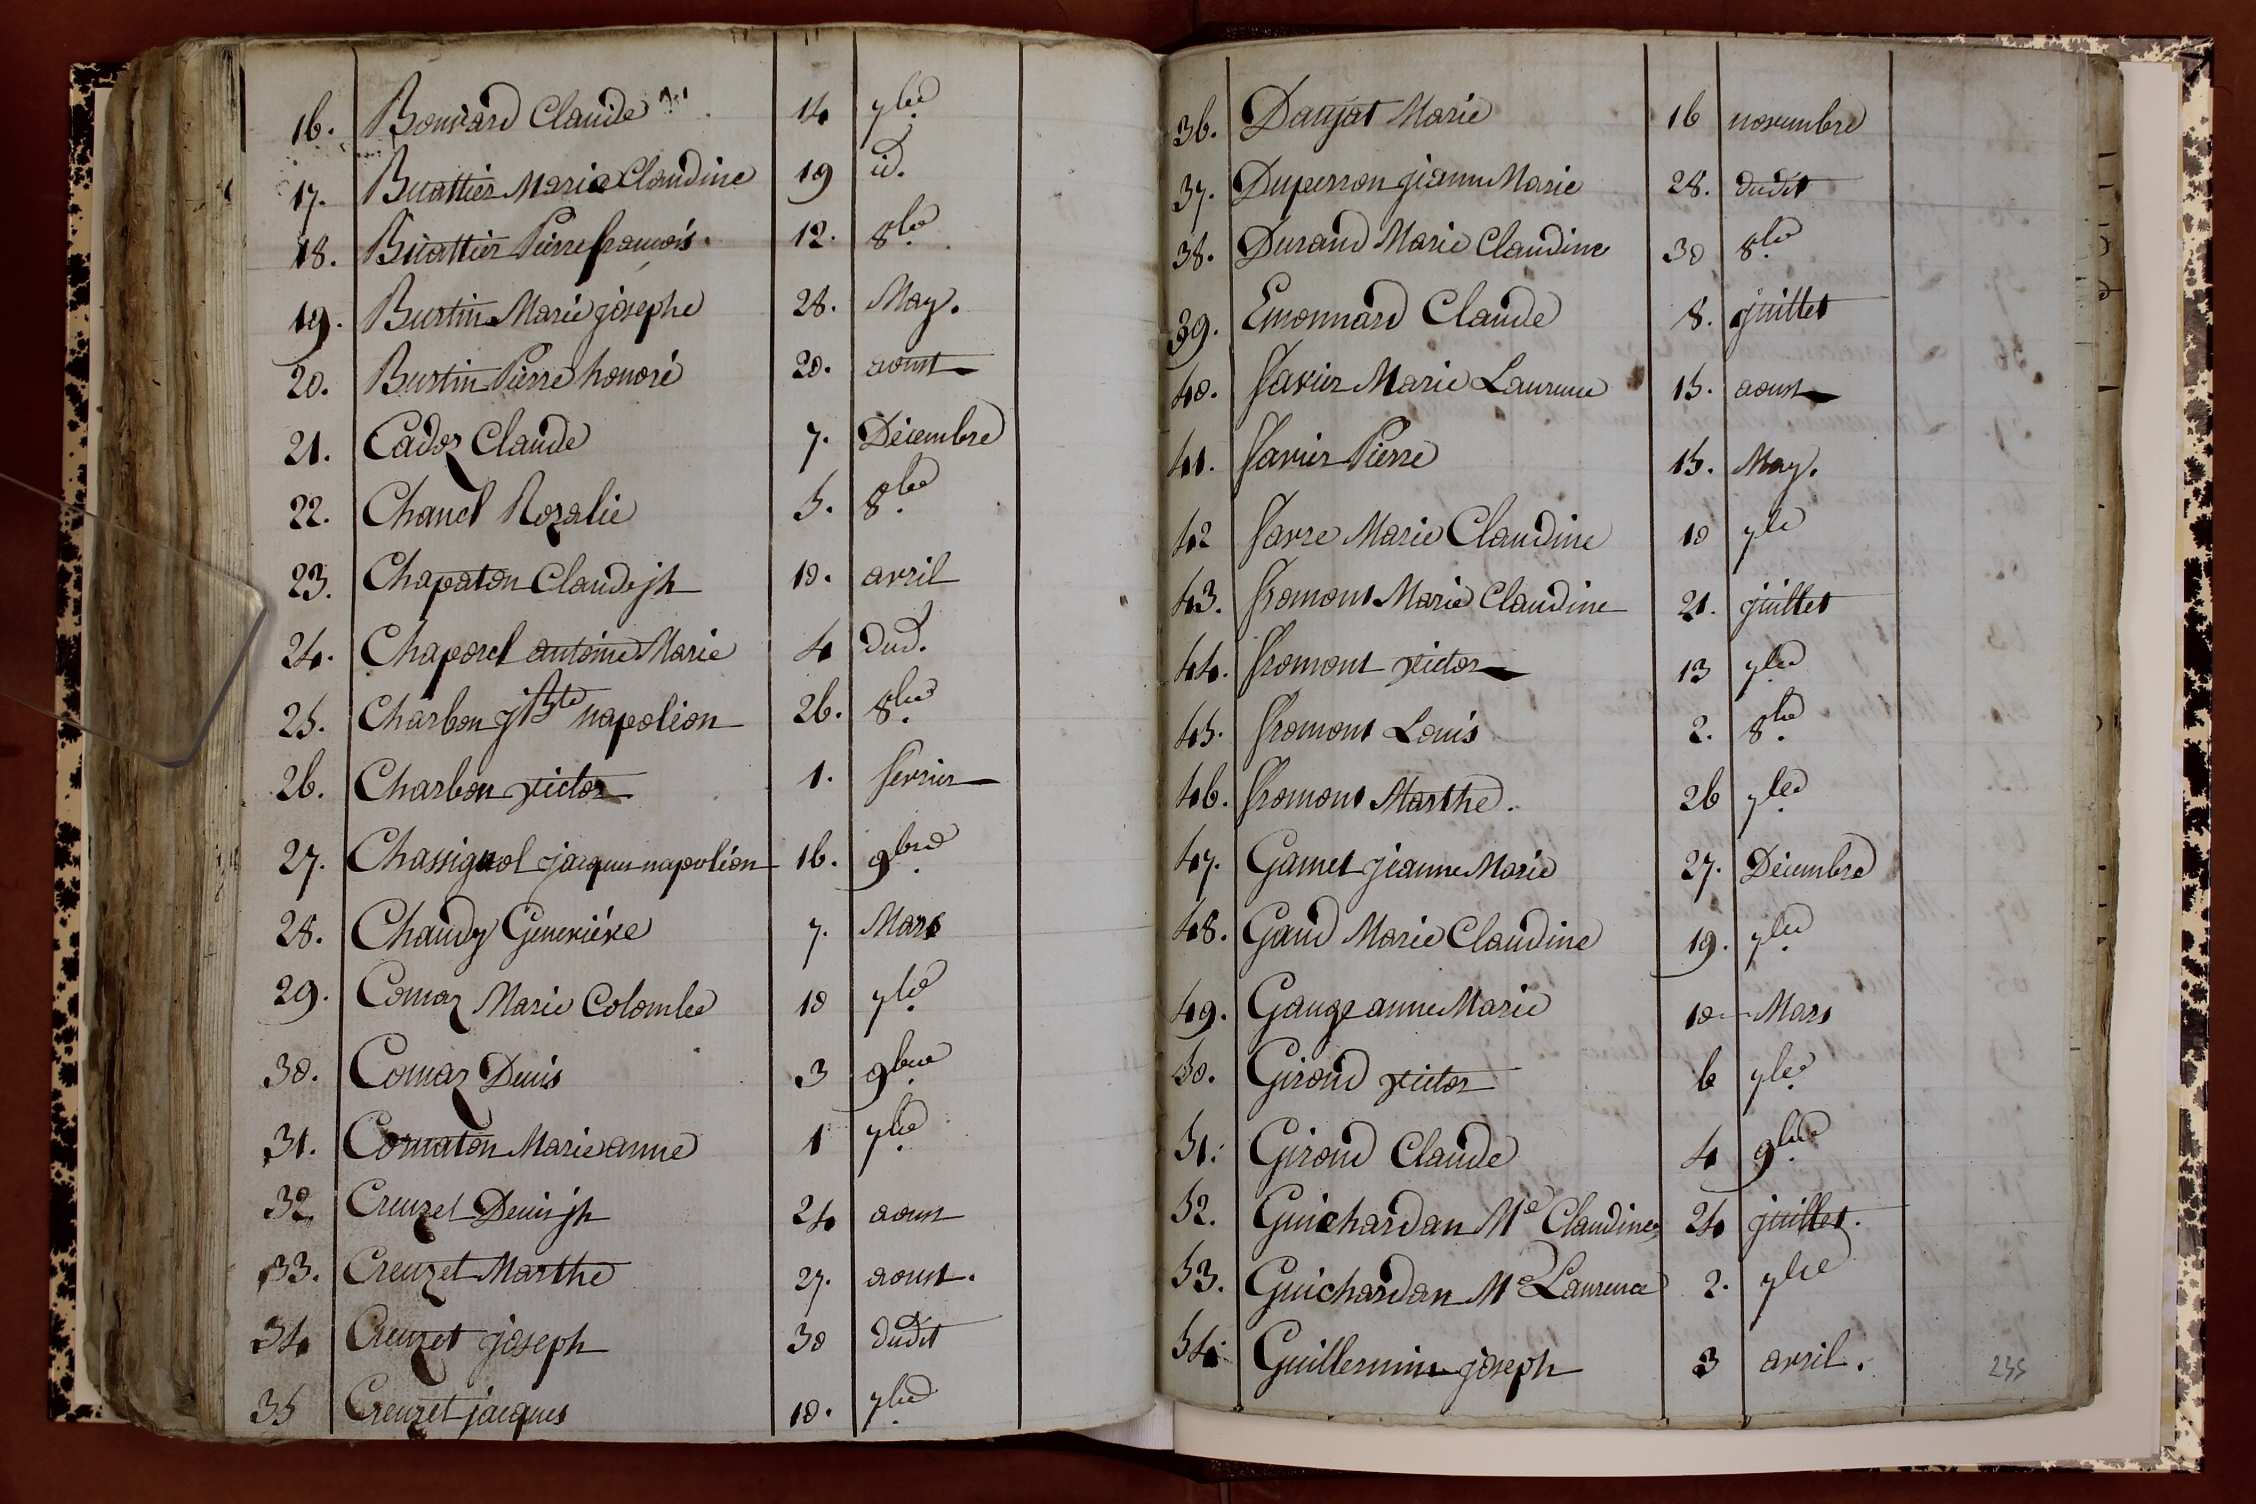 16. Bouvard Claude 14 7bre
17. Buattier Marie Claudine 19 id.
18. Buattier Pierre francois. 12. 8bre
19. Burtin Marie josephe 28. May.
20. Burtin Pierre honoré 20. aoust
21. Cadoz Claude 7. Décembre
22. Chanel Rozalie 5. 8bre
23. Chapaton Claude jh 10. avril
24. Chaporel antoine Marie 4 dud.
25. Charbon jn Bte napoléon 26. 8bre
26. Charbon victor 1. fevrier
27. Chassignol jacques napoléon 16. 9bre
28. Chaudy Genevieve 7. Mars
29. Comaz Marie Colombe 10 7bre
30. Comaz Denis 3 9bre
31. Cornaton Marie anne 1 7bre
32. Creuzet Denis jh 24 aoust
33. Creuzet Marthe 27. aoust.
34 Creuzet joseph 30 dudit
35 Creuzet jacques 10. 7bre
36. Daujat Marie 16 novembre
37. Duperron jeanne Marie 28. dudit
38. Durand Marie Claudine 30 8bre
39. Emonnard Claude 8. juillet
40. favier Marie Laurence 15. aoust
41. favier Pierre 15. May.
42 favre Marie Claudine 10 7bre
43. fromont Marie Claudine 21. juillet
44. fromont victor 13 7bre
45. fromont Louis 2. 8bre
46. fromont Marthe. 26 7bre
47. Gamet jeanne Marie 27. Décembre
48. Gaud Marie Claudine 19. 7bre
49. Gauge anne Marie 10 Mars
50. Giroud victor 6 7bre
51. Giroud Claude 4 9bre
52. Guichardan Me Claudine 24 juillet.
53. Guichardan Me Laurence 2. 7bre
54. Guillermin joseph 3 avril.
235